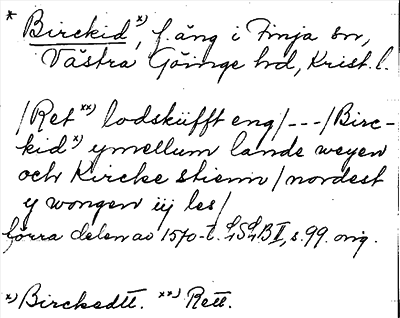 * Birckid *), f. äng i Finja sn,
Västra Göinge hd, Krist. l.
/Ret **) lodskiifft eng/---/Birc-
kid *) ymellum lande weyen
och Kircke stienn/nordest
y wongen iij les/
Förra delen av 1570-t. LSLB II, s. 99. orig.
*) Birckedtt. **) Rett.